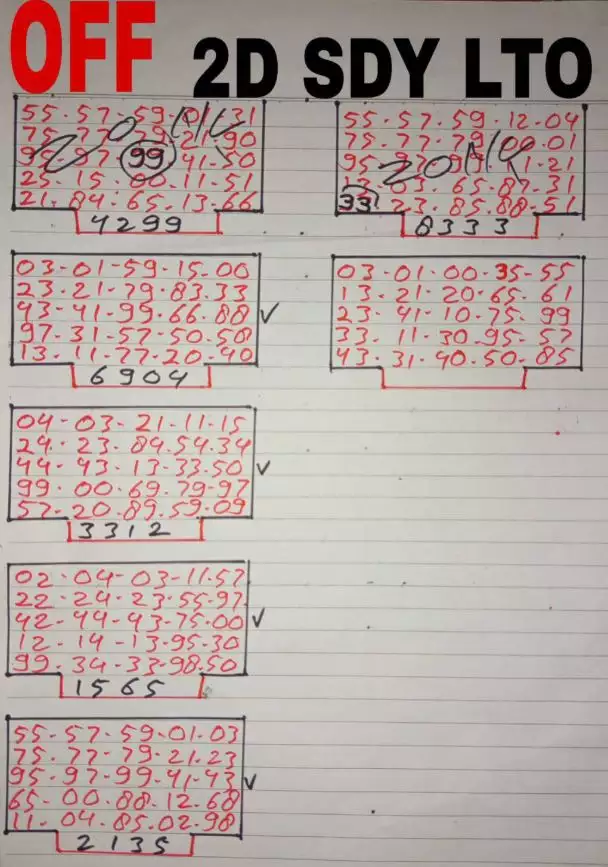 OFF 2D SDY LTO
55-57-59-01-31
75-77-79-21-90
99 41-50
25-15-00-11-51
21-84-65-13-66
4299
03-01-59-15-00
23-21-79-83-33
43-41-99-66-88 ✓
97-31-57-50-58
13-11-77-20-40
6904
04-03-21-11-15
24-23-84-54-34
44-43-13-33-50 ✓
99-00-69-79-97
57-20-89-59-09
3312
02-04-03-11-57
22-24-23-55-97
42-44-43-75-00 ✓
12-14-13-95-30
99-34-33-98-50
1565
55-57-59-01-03
75-77-79-21-23
95-97-99-41-43 ✓
65-00-88-12-68
11-04-85-02-98
2135
55-57-59-12-04
75-77-79-00-01
95 21
63-65-87-31
33 23-85-88-51
8333
03-01-00-35-55
13-21-20-65-61
23-41-10-75-99
33-11-30-95-57
43-31-40-50-85